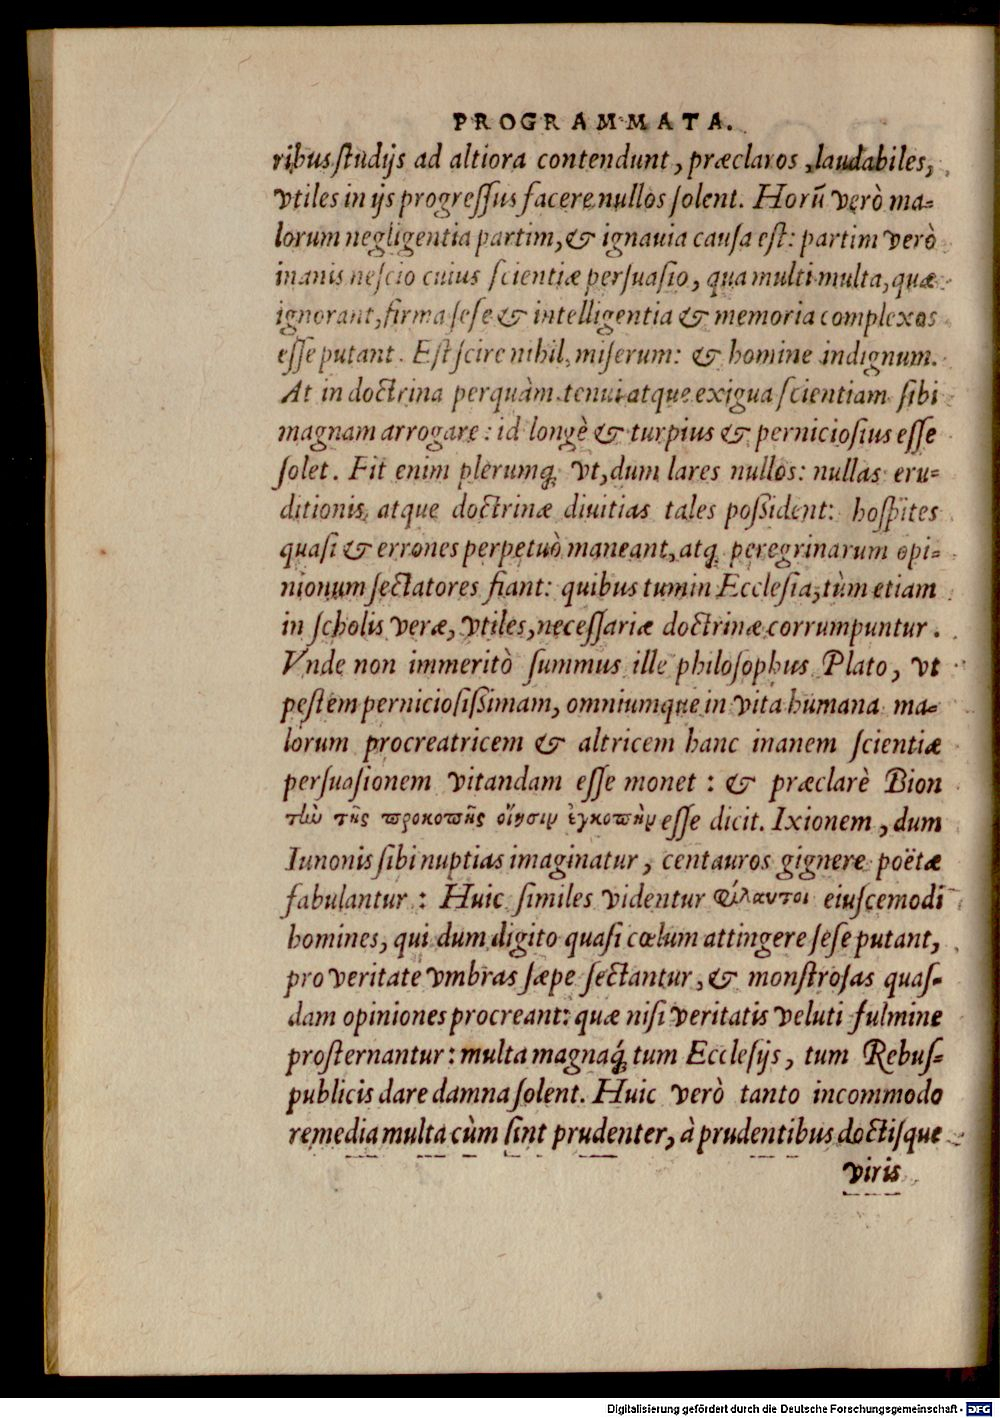 PROGRAMMATA.
ribus ſtudijs ad altiora contendunt, præclaros, laudabiles,
vtiles in ijs progreſſus facere nullos ſolent. Horũ verò ma-
lorum negligentia partim, & ignauia cauſa eſt: partim verò
inanis neſcio cuius ſcientiæ perſuaſio, qua multi multa, quæ
ignorant, firma ſeſe & intelligentia & memoria complexos
eſſe putant. Eſt ſcire nihil, miſerum: & homine indignum.
At in doctrina perquàm tenui atque exigua ſcientiam ſibi
magnam arrogare: id longè & turpius & pernicioſius eſſe
ſolet. Fit enim plerumq; vt, dum lares nullos: nullas eru-
ditionis atque doctrinæ diuitias tales poſsident: hoſpites
quaſi & errones perpetuò maneant, atq; peregrinarum opi-
nionum ſectatores fiant: quibus tum in Eccleſia, tùm etiam
in ſcholis veræ, vtiles, neceſſariæ doctrinæ corrumpuntur.
Vnde non immeritò ſummus ille philoſophus Plato, vt
peſtem pernicioſiſsimam, omniumque in vita humana ma-
lorum procreatricem & altricem hanc inanem ſcientiæ
perſuaſionem vitandam eſſe monet: & præclarè Bion
τὴν τῆς προκοπῆς οἴησιν ἐγκοπὴν eſſe dicit. Ixionem, dum
Iunonis ſibi nuptias imaginatur, centauros gignere poëtæ
fabulantur: Huic ſimiles videntur φίλαυτοι eiuſcemodi
homines, qui dum digito quaſi cœlum attingere ſeſe putant,
pro veritate vmbras ſæpe ſectantur, & monſtroſas quaſ-
dam opiniones procreant: quæ niſi veritatis veluti fulmine
proſternantur: multa magnaq́; tum Eccleſijs, tum Rebuſ-
publicis dare damna ſolent. Huic verò tanto incommodo
remedia multa cùm ſint prudenter, à prudentibus doctiſque
viris
Digitalisierung gefördert durch die Deutsche Forschungsgemeinschaft - DFG